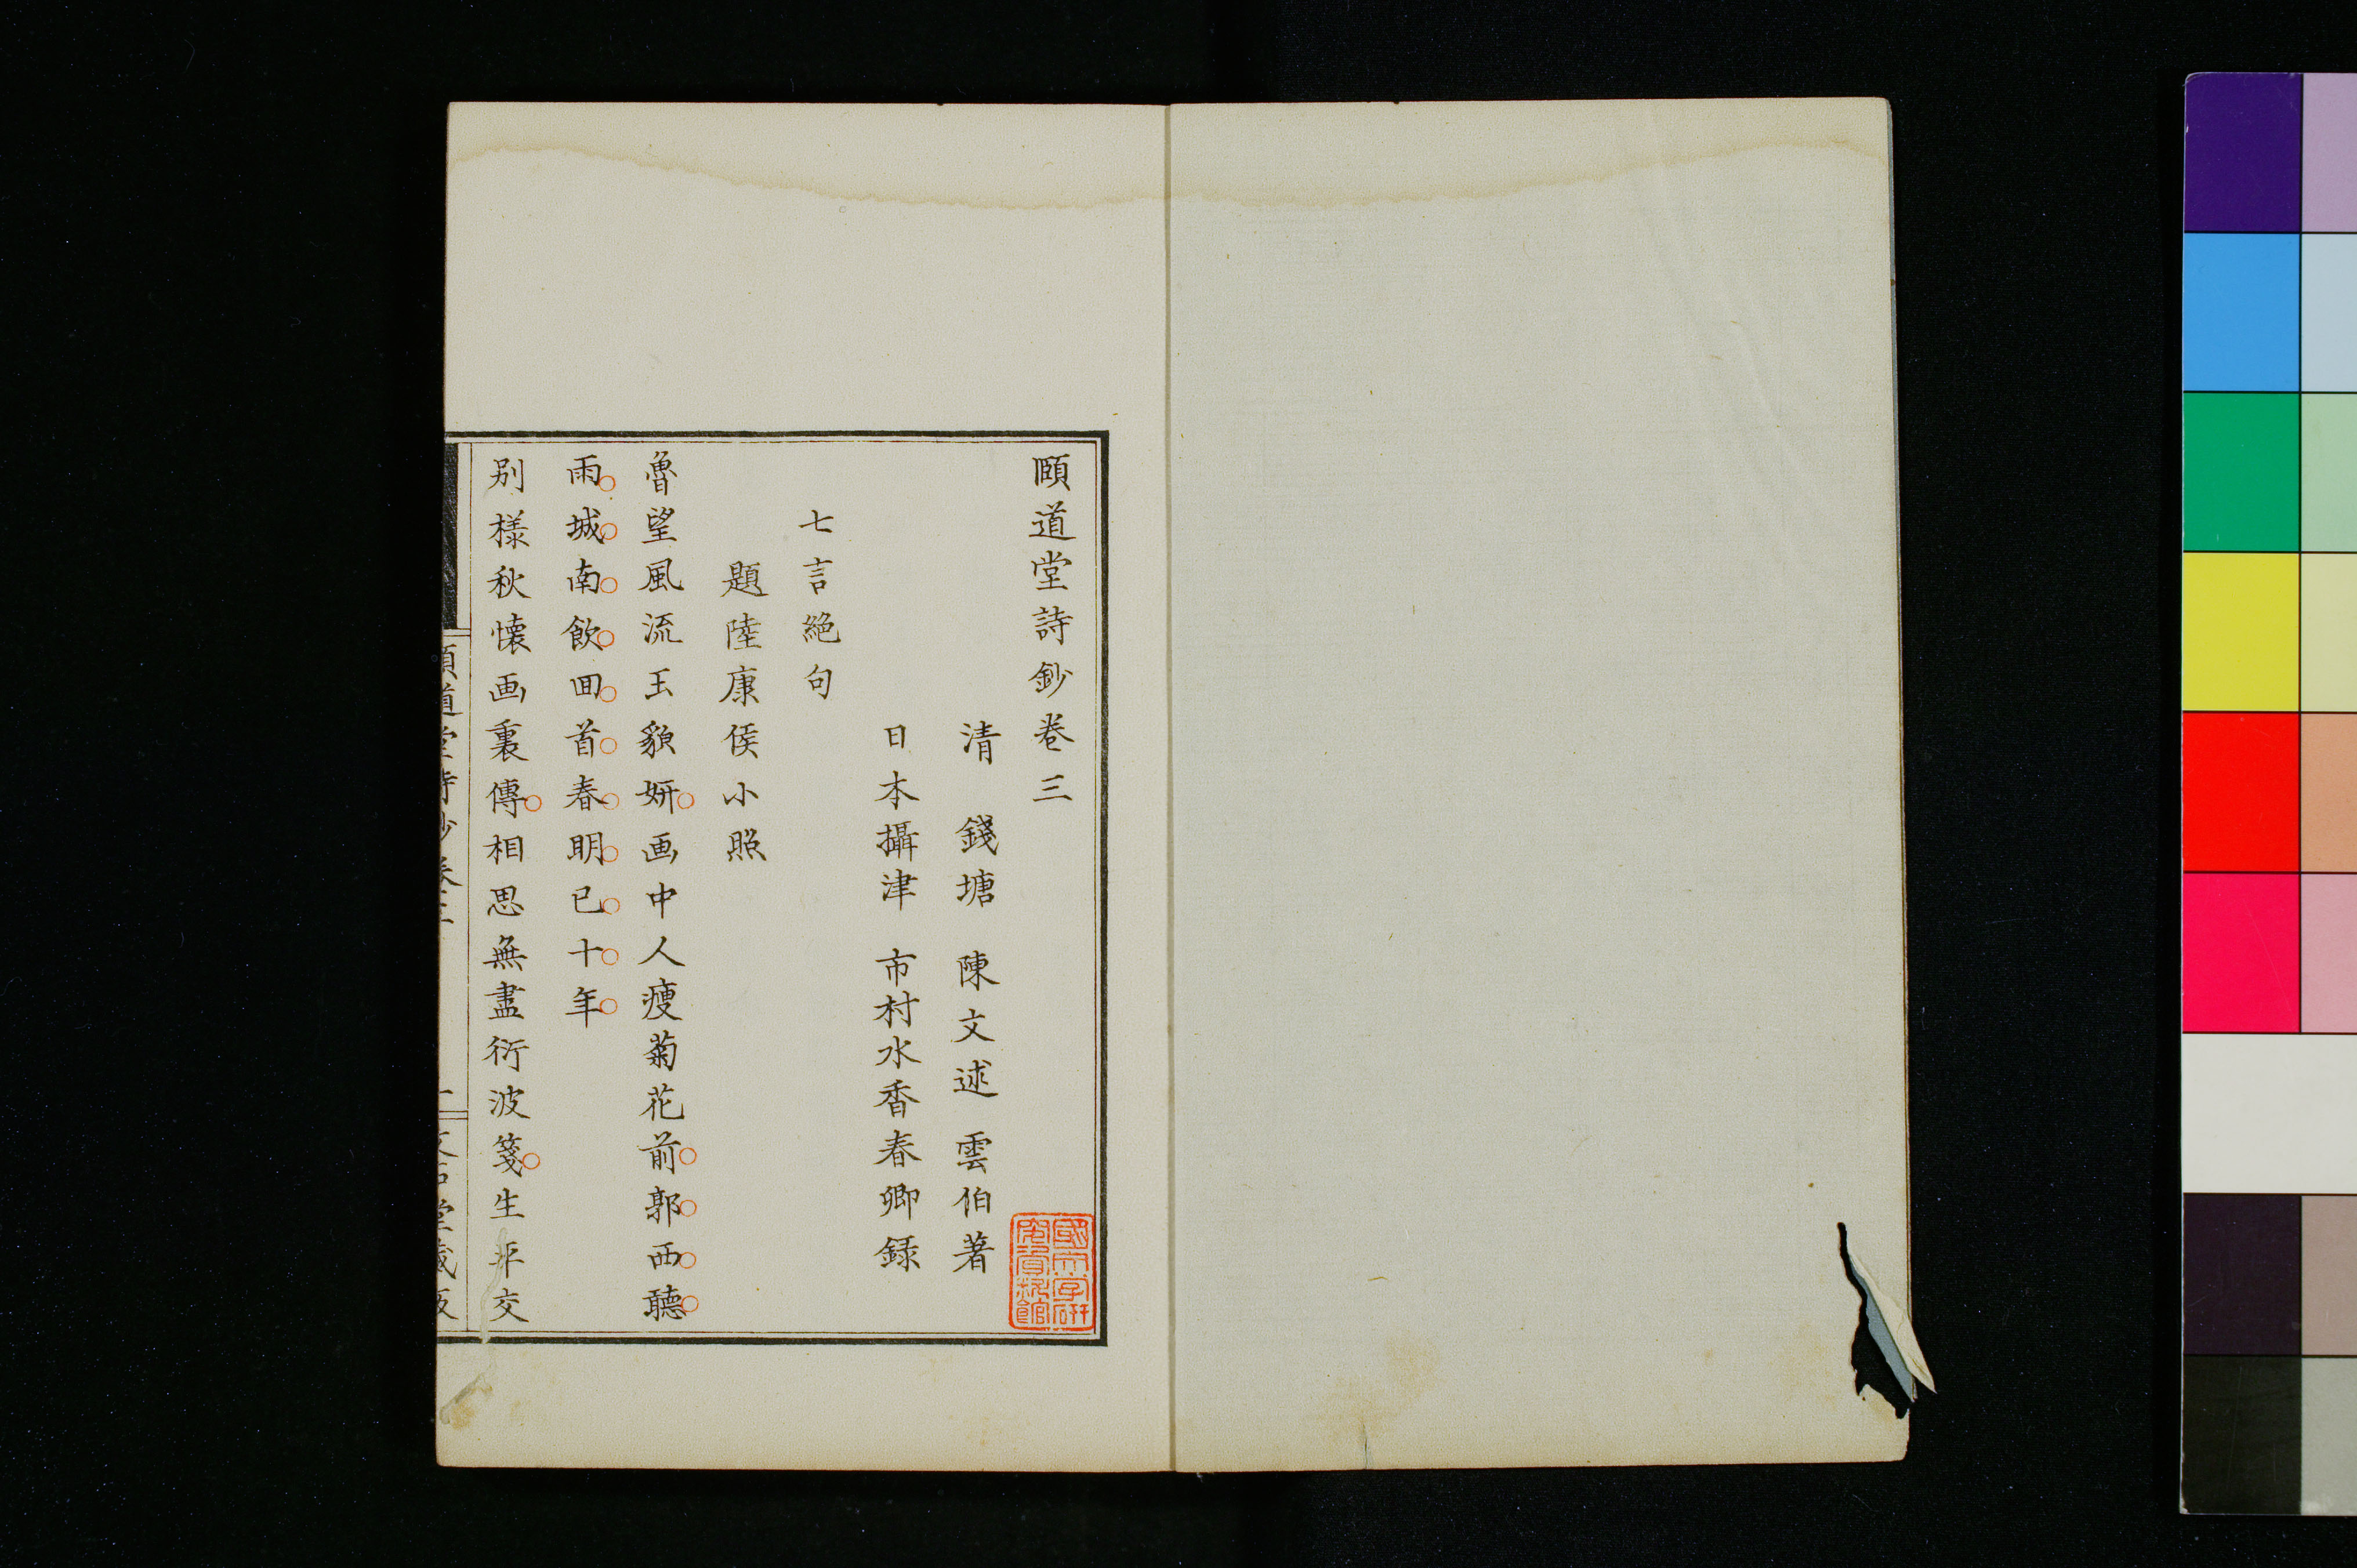 頤道堂詩鈔卷三
清　錢塘　陳文述　雲伯著
日本攝津　市村水香春卿録
七言絶句
題陸康侯小照
魯望風流玉貌妍画中人瘦菊花前郭西聽
雨城南飲回首春明已十年
别樣秋懷画裏傳相思無盡衍波箋生平交
國文学研
究資料館